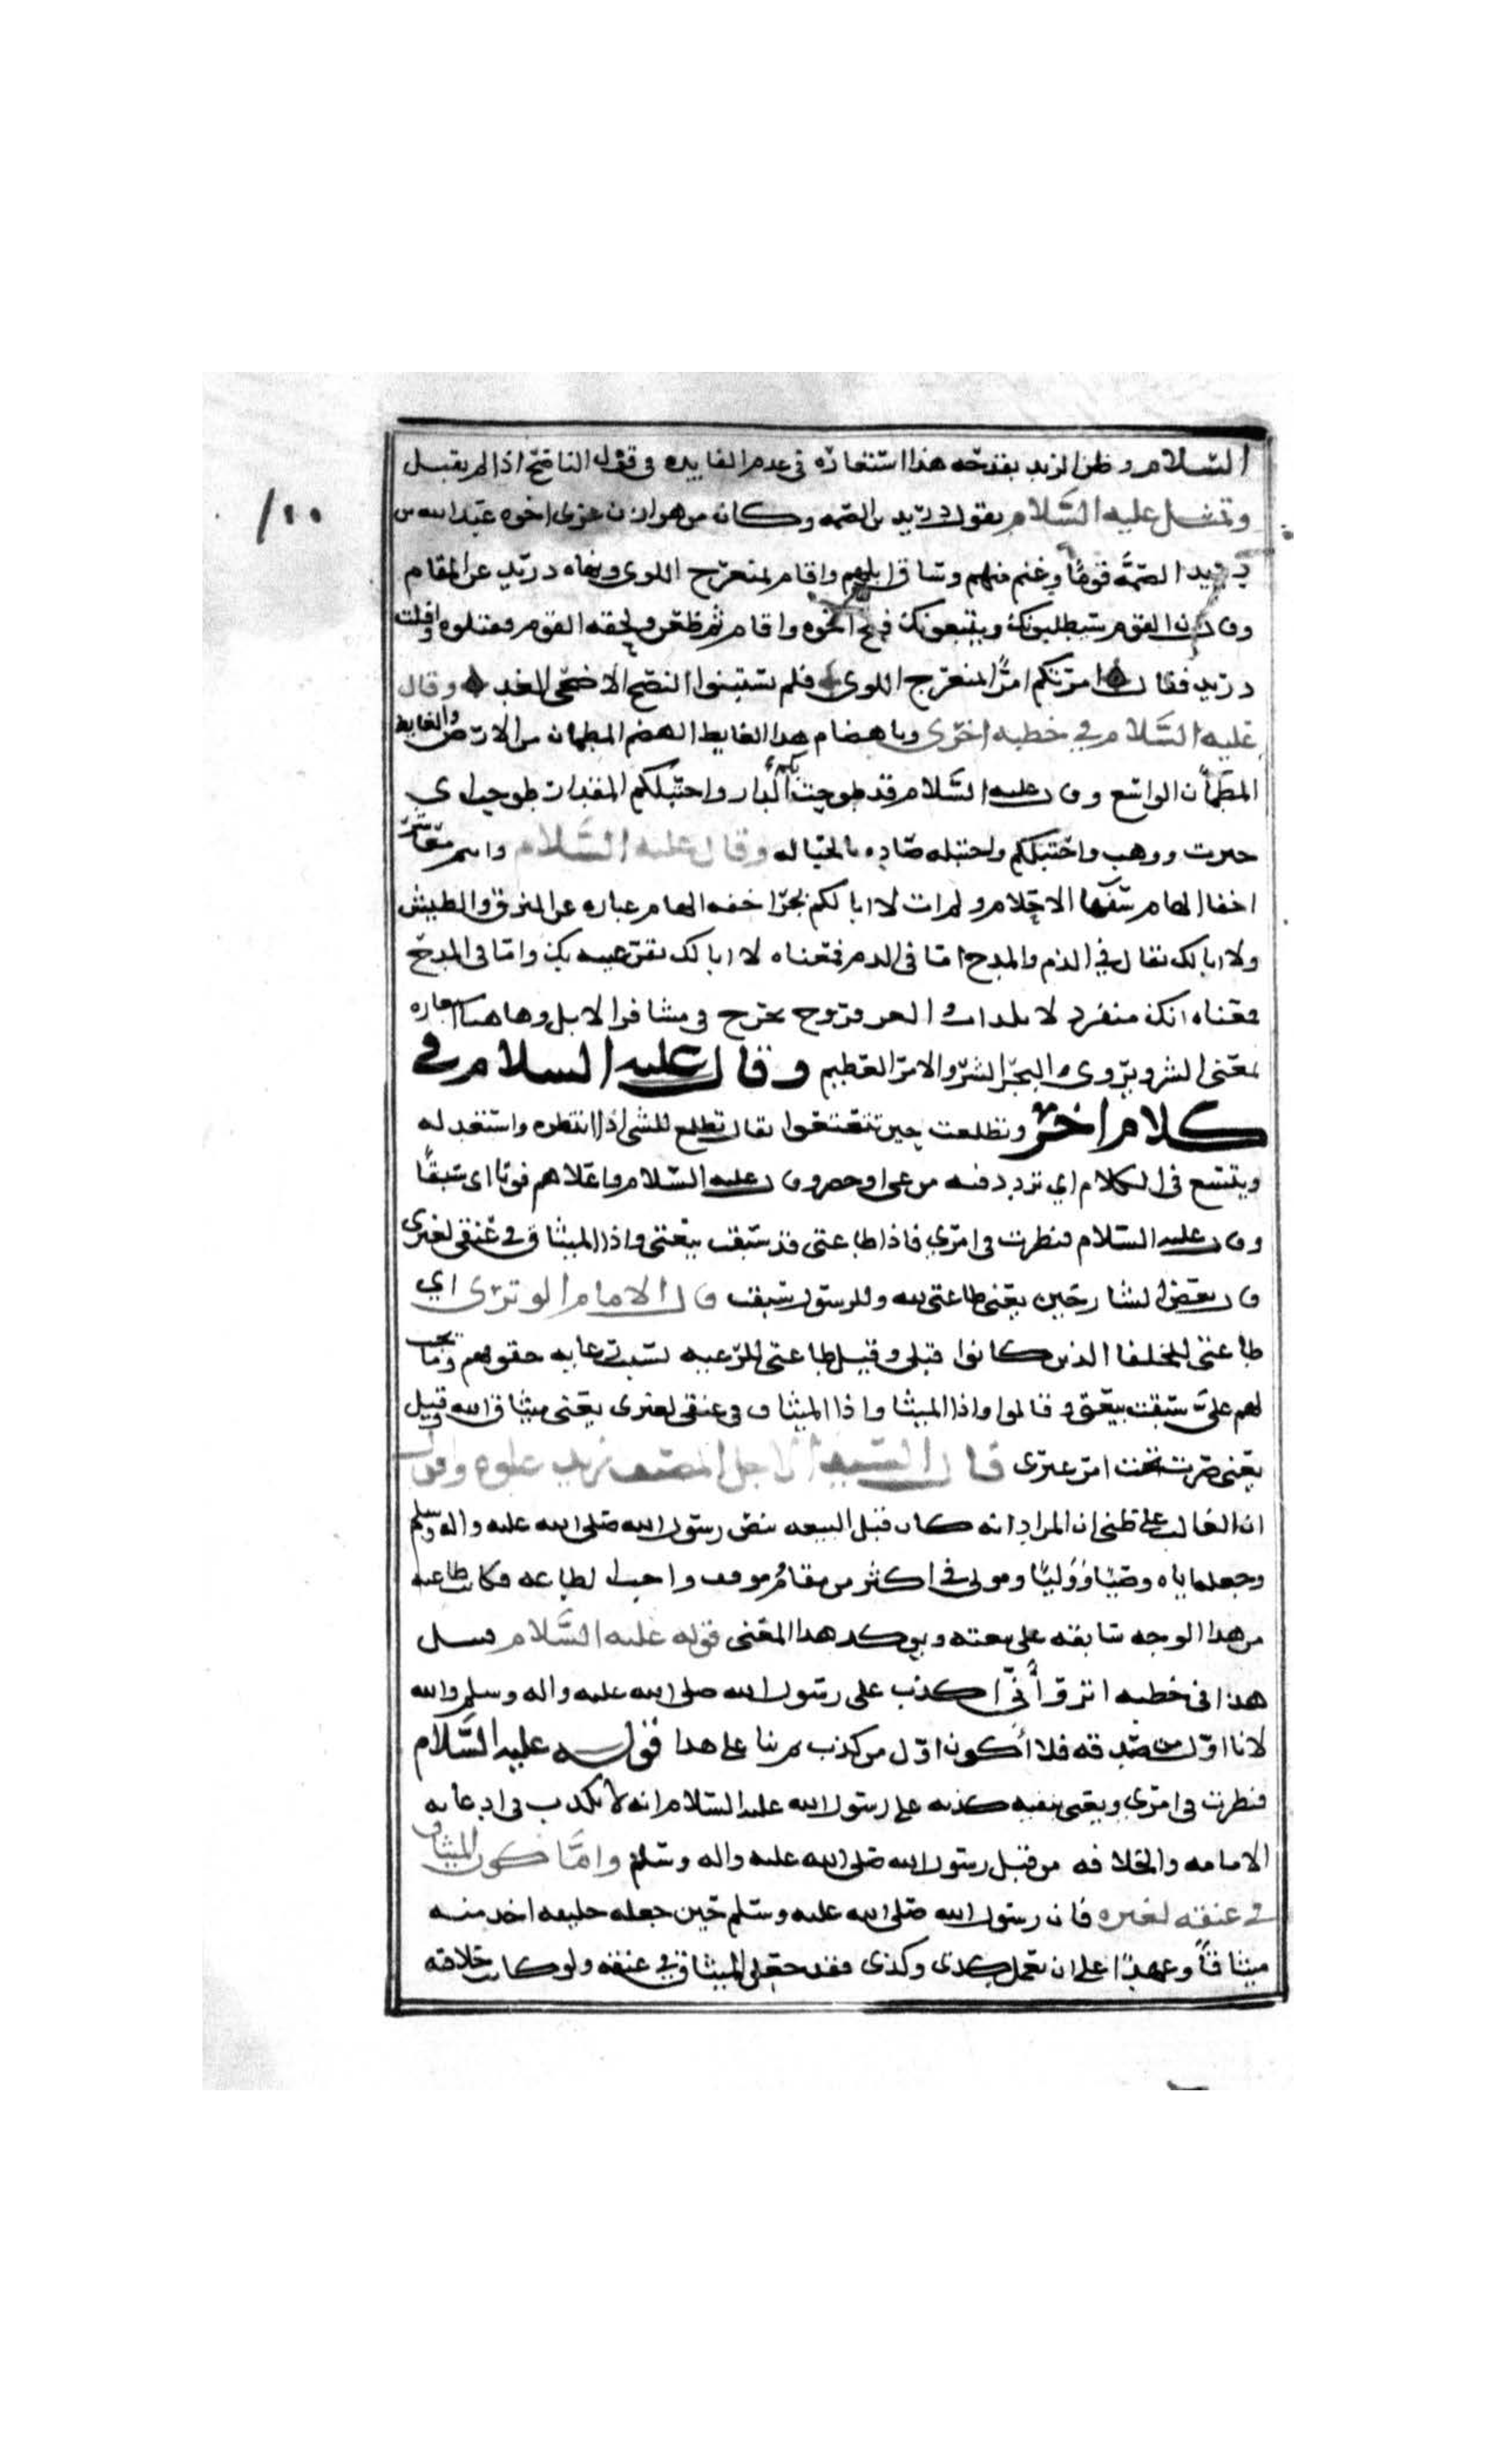 السلام وظن الزند بقدحه هذا استعاره في عدم الفايده في قول الناصح اذا لم يقبل
وتمثل عليه السلام بقول دريد بن الصمه وكان من هوازن غزى اخوه عبدالله بن
الصمَّه قومًا وغنم منهم وساق ابلهم واقام بمنعرج اللوى ونهاه دريد عن المقام
وقال ان القوم سيطلبونك ويتبعونك فلج اخوه واقام ثم ظعن ولحقه القوم فقتلوه وافلت
دريد فقال امرتكم امرًا بمنعرج اللوى فلم تستبينوا النصح الا ضحى الغد وقال
عليه السلام في خطبه اخرى وباهضام هذا الغايط الهضم المطمان من الارض والغايط
المطمأن الواسع وقال عليه السلام قد طوحت بكم الدار واحتبلكم المقدار طوحت اي
حيرت وواحتبلكم واحتبله صاده بالحباله وقال عليه السلام وانتم معاشر
اخفا الهام سفها الاحلام ولم ات لا ابا لكم بجرًا خفه الهام عباره عن النزق والطيش
ولا ابا لك يقال في الذم والمدح اما في الذم فمعناه لا ابا لك تقر عينه بك واما في المدح
فمعناه انك منفرد لا يلد ابـ والعر قروح تخرج في مشافر الابل وهاهنا استعاره
بمعنى الشر ويروى والبجر الشر والامر العظيم وقال عليه السلام في
كلام اخر وتطلعت حين تعتعوا يقال تطلع للشي اذا انتظره واستعد له
ويتتعتع في الكلام اي تردد فيه من عي او حصر وقال عليه السلام واعلاهم فوتا اي سبقًا
وقال عليه السلام فنظرت في امري فاذا طاعتي قد سبقت بيعتي واذا الميثاق في عنقي لغيري
قال بعض الشارحين يعني طاعتي لله وللرسول سبقت قال الامام الوبري اي
طاعتي للخلفا الذين كانوا قبلي وقيل طاعتي للرعيه لسبب رعايه حقوقهم وما يجب
لهم عليّ سبقت بيعتي وقالوا واذا الميثاق في عنقي لغيري يعني ميثاق الله وقيل
يعني صرت تحت امر غيري قال السيد الاجل المصنف زيد علوه واقول
ان الغالب على ظني ان المراد انه كان قبل البيعه بنص رسول الله صلى الله عليه واله وسلم
وجعله اياه وصيًا ووليًا ومولى في اكثر من مقام وموقف واجب الطاعه فكانت طاعته
من هذا الوجه سابقه على بيعته ويوكد هذا المعنى قوله عليه السلام قبل
هذا في خطبه اتروْ أنّي اكذب على رسول الله صلى الله عليه واله وسلم والله
لانا اول من صدقه فلا أكون اول من كذب مر بنا على هذا قوله عليه السلام
فنظرت في امري ويعني بنفيه كذبه على رسول الله عليه السلام انه لا يكذب في ادعايه
الامامه والخلافه من قبل رسول الله صلى الله عليه واله وسلم وامَّا كون الميثاق
في عنقه لغيره فان رسول الله صلى الله عليه وسلم حين جعله خليفه اخذ منه
ميثاقًا وعهدًا على ان يعمل كذى وكذى فقد حصل الميثاق في عنقه ولو كانت خلافته
١٠٠